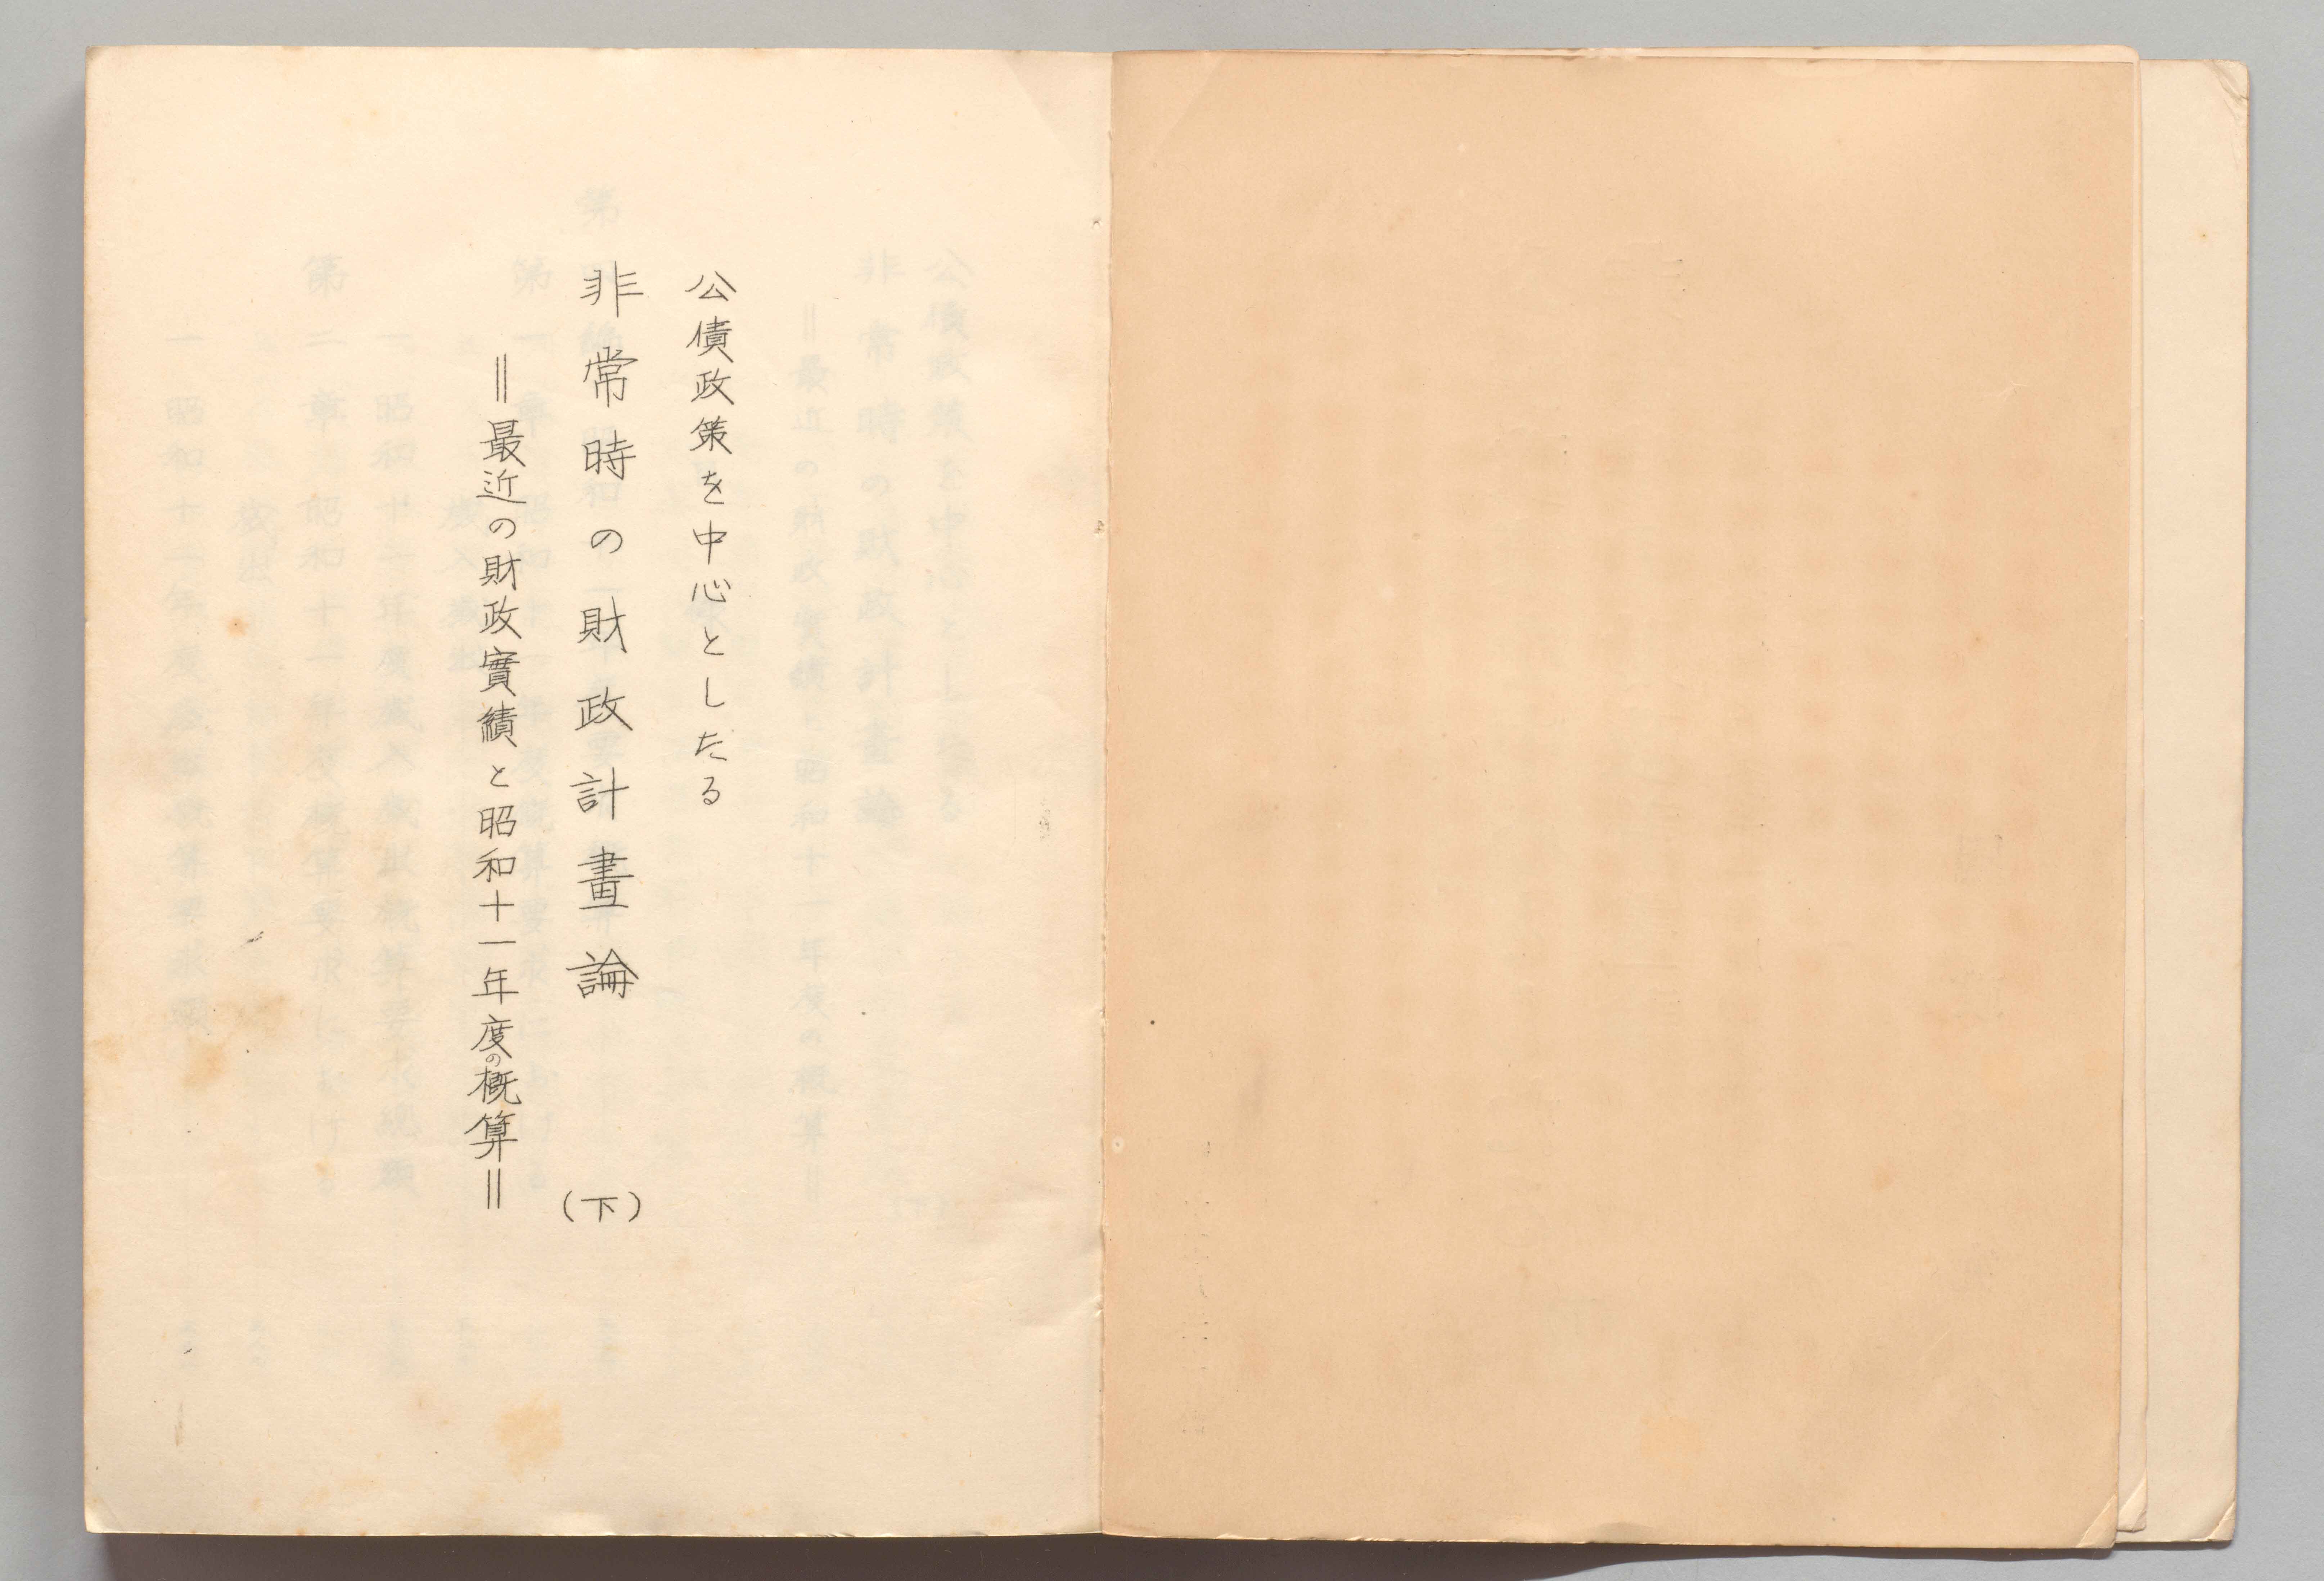 公債政策を中心としたる
非常時の財政計畫論 (下)
＝最近の財政實績と昭和十一年度の概算＝